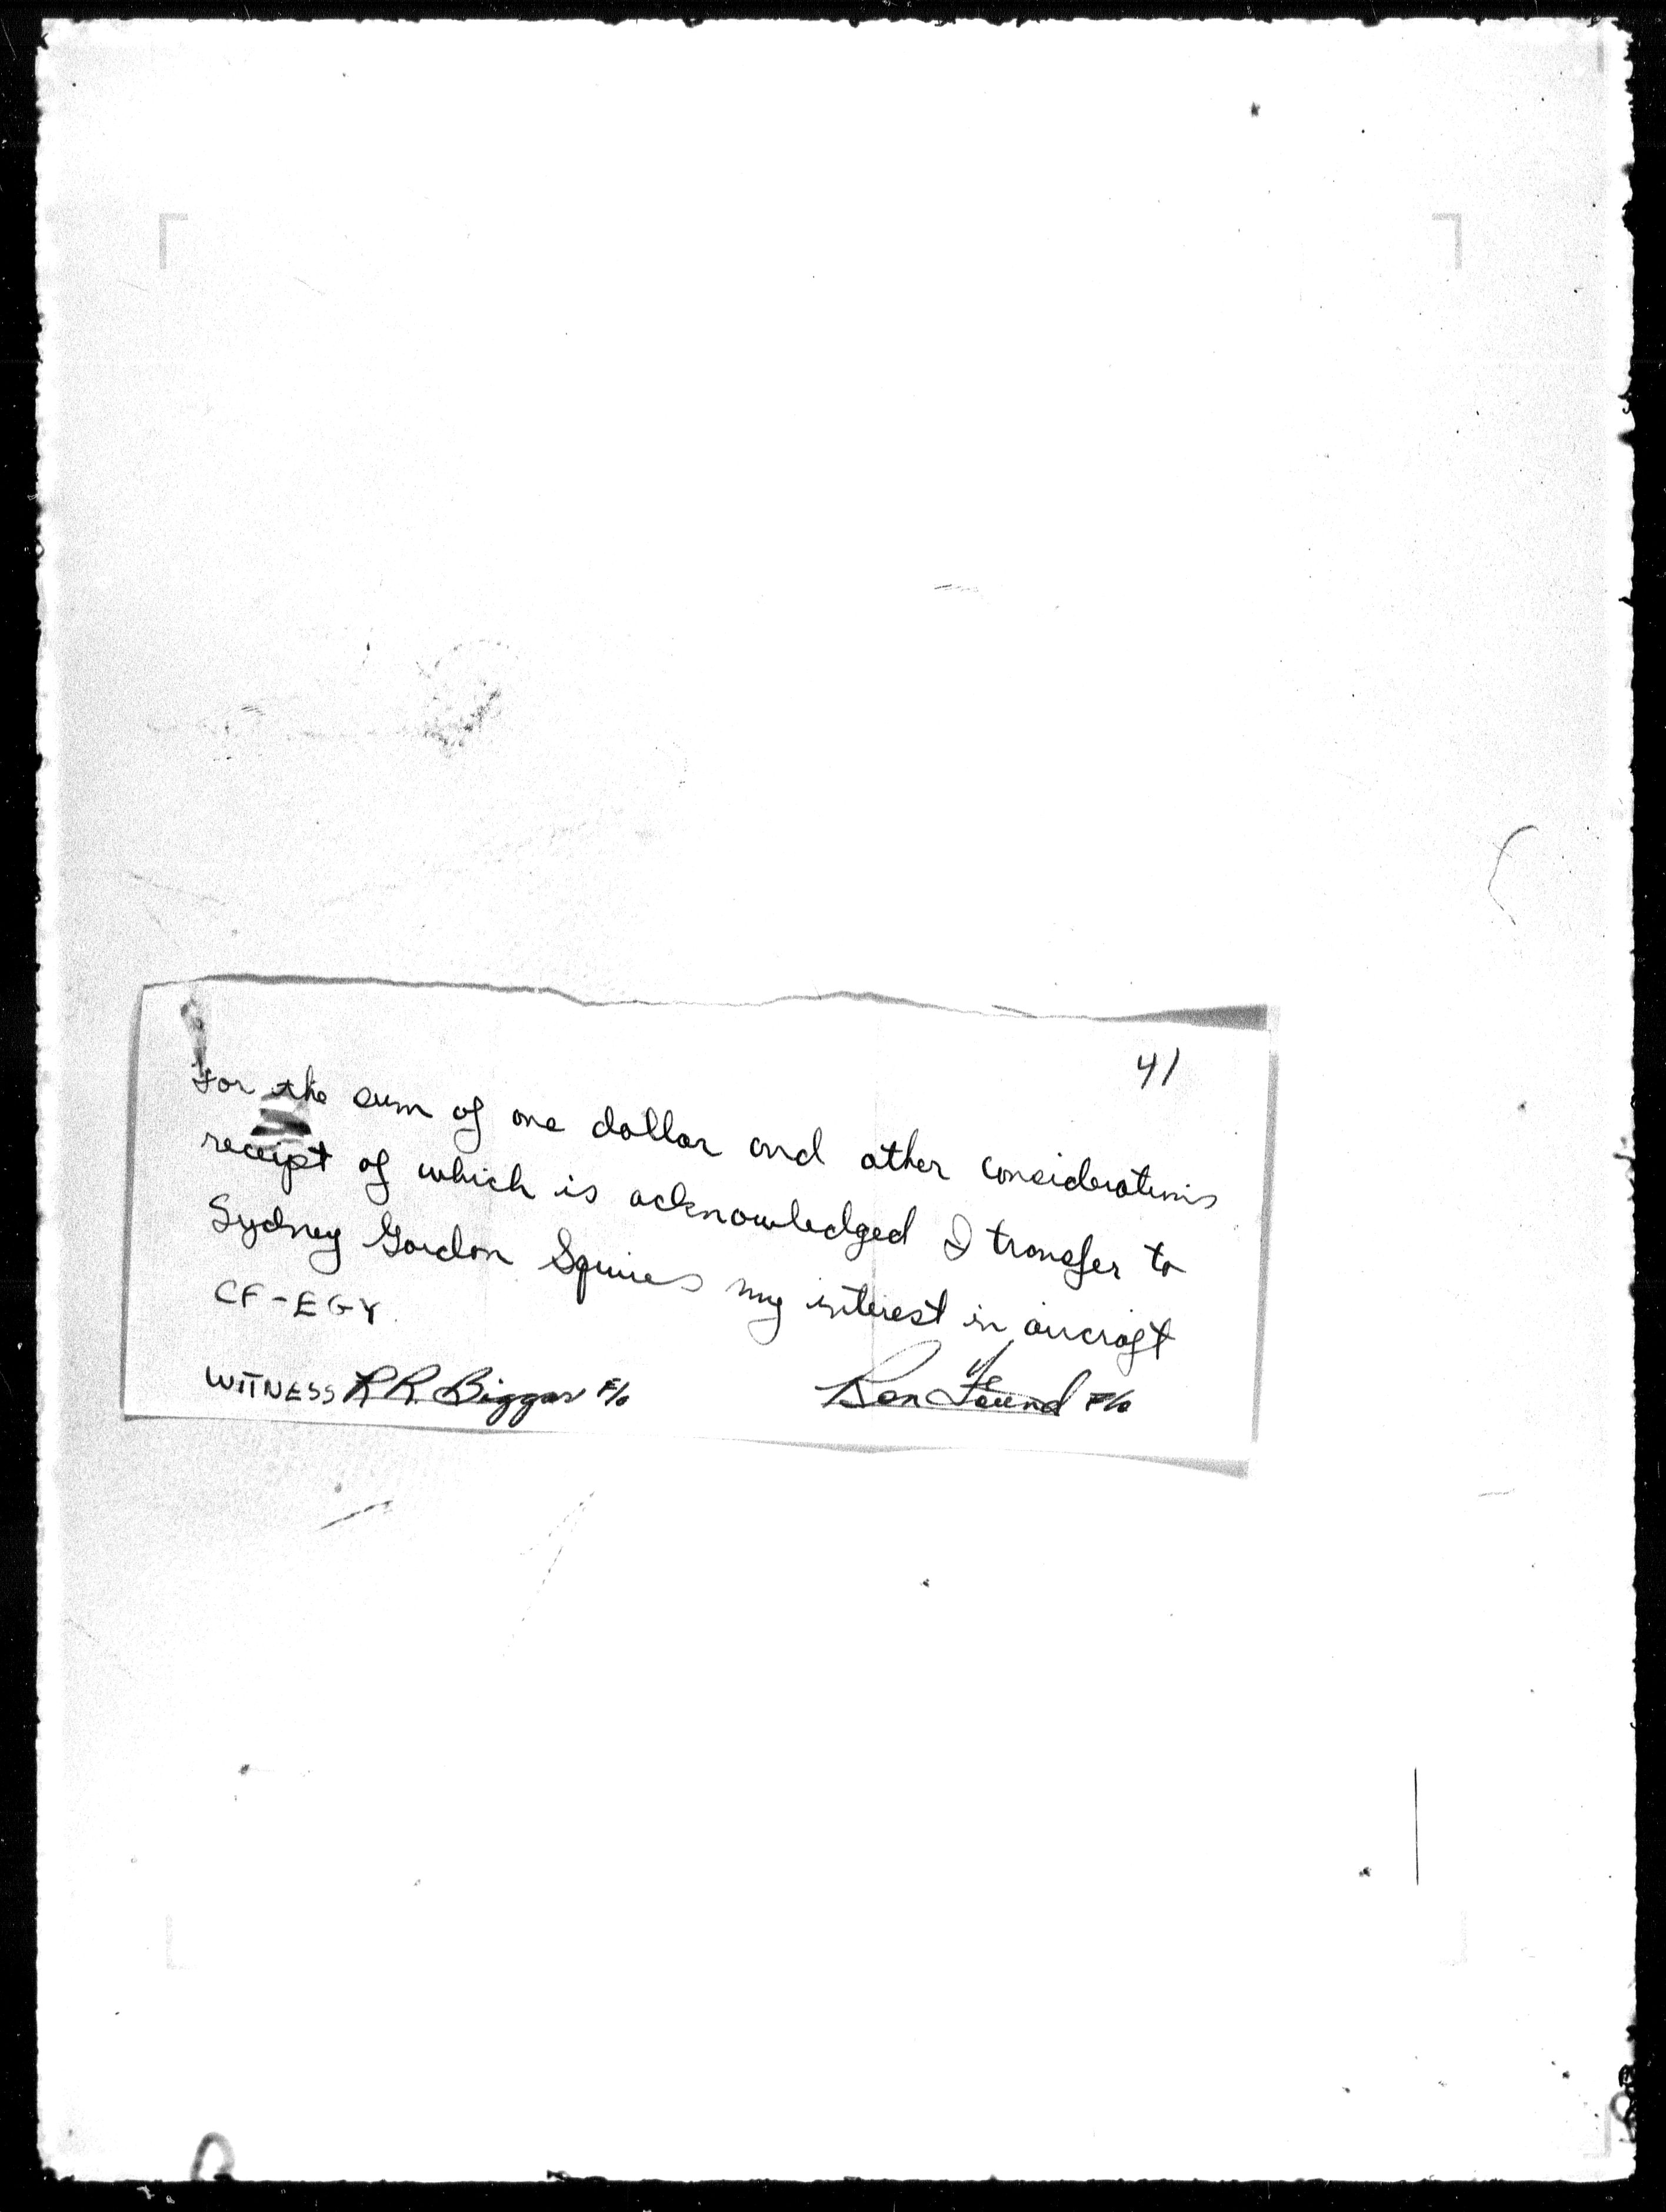 41
For the sum of one dollar and other considerations
receipt of which is acknowledged I transfer to
Sydney Gordon Squires my interest in aircraft
CF-EGY.
WITNESS R R. Biggar F/O
F/O